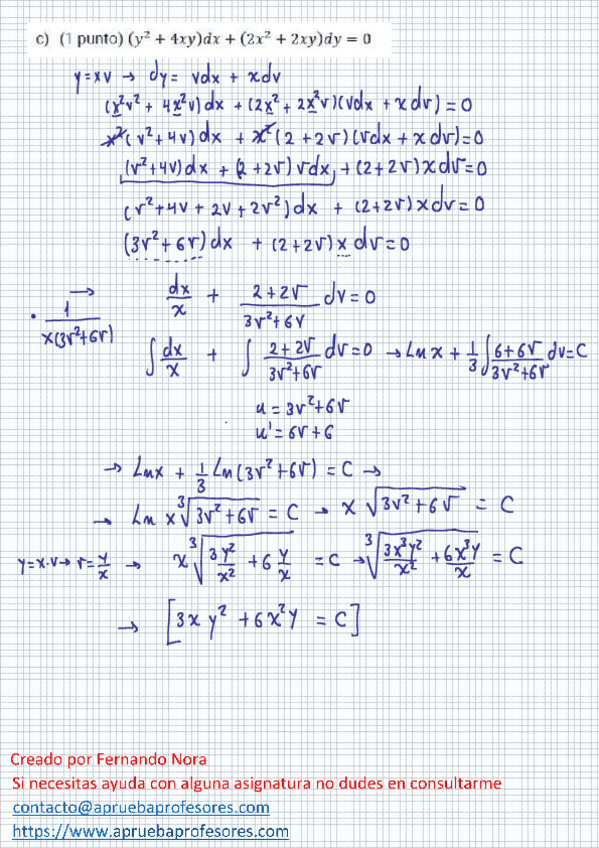 c) (1 punto) (y² + 4xy)dx + (2x² + 2xy)dy = 0
y=xv → dy= vdx + xdv
(x²v² + 4x²v)dx + (2x² + 2x²v)(vdx + xdv)=0
x²(v²+4v)dx + x²(2+2v)(vdx + xdv)=0
(v²+4v)dx + (2+2v)vdx + (2+2v)xdv=0
(v²+4v + 2v + 2v²)dx + (2+2v)xdv=0
(3v²+6v)dx + (2+2v)xdv=0
· 1/x(3v²+6v) → dx/x + 2+2v/3v²+6v dv=0
∫dx/x + ∫ 2+2v/3v²+6v dv=0 → Lnx + 1/3 ∫ 6+6v/3v²+6v dv=C
u = 3v²+6v
u'= 6v+6
→ Lnx + 1/3 Ln(3v²+6v) = C →
→ Ln x ∛3v²+6v = C → x √3v²+6v = C
y=x·v→ v=y/x → x ∛3y²/x² + 6 y/x = C → ∛3x³y²/x² + 6x³y/x = C
→ [3xy² + 6x²y = C]
Creado por Fernando Nora
Si necesitas ayuda con alguna asignatura no dudes en consultarme
contacto@apruebaprofesores.com
https://www.apruebaprofesores.com